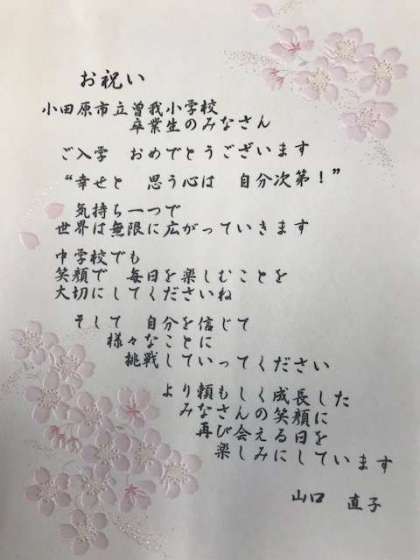 お祝い
小田原市立曽我小学校
卒業生のみなさん
ご入学　おめでとうございます
“幸せと　思う心は　自分次第！”
気持ち一つで
世界は無限に広がっていきます
中学校でも
笑顔で　毎日を楽しむことを
大切にしてくださいね
そして　自分を信じて
様々なことに
挑戦していってください
より頼もしく成長した
みなさんの笑顔に
再び会える日を
楽しみにしています
山口　直子